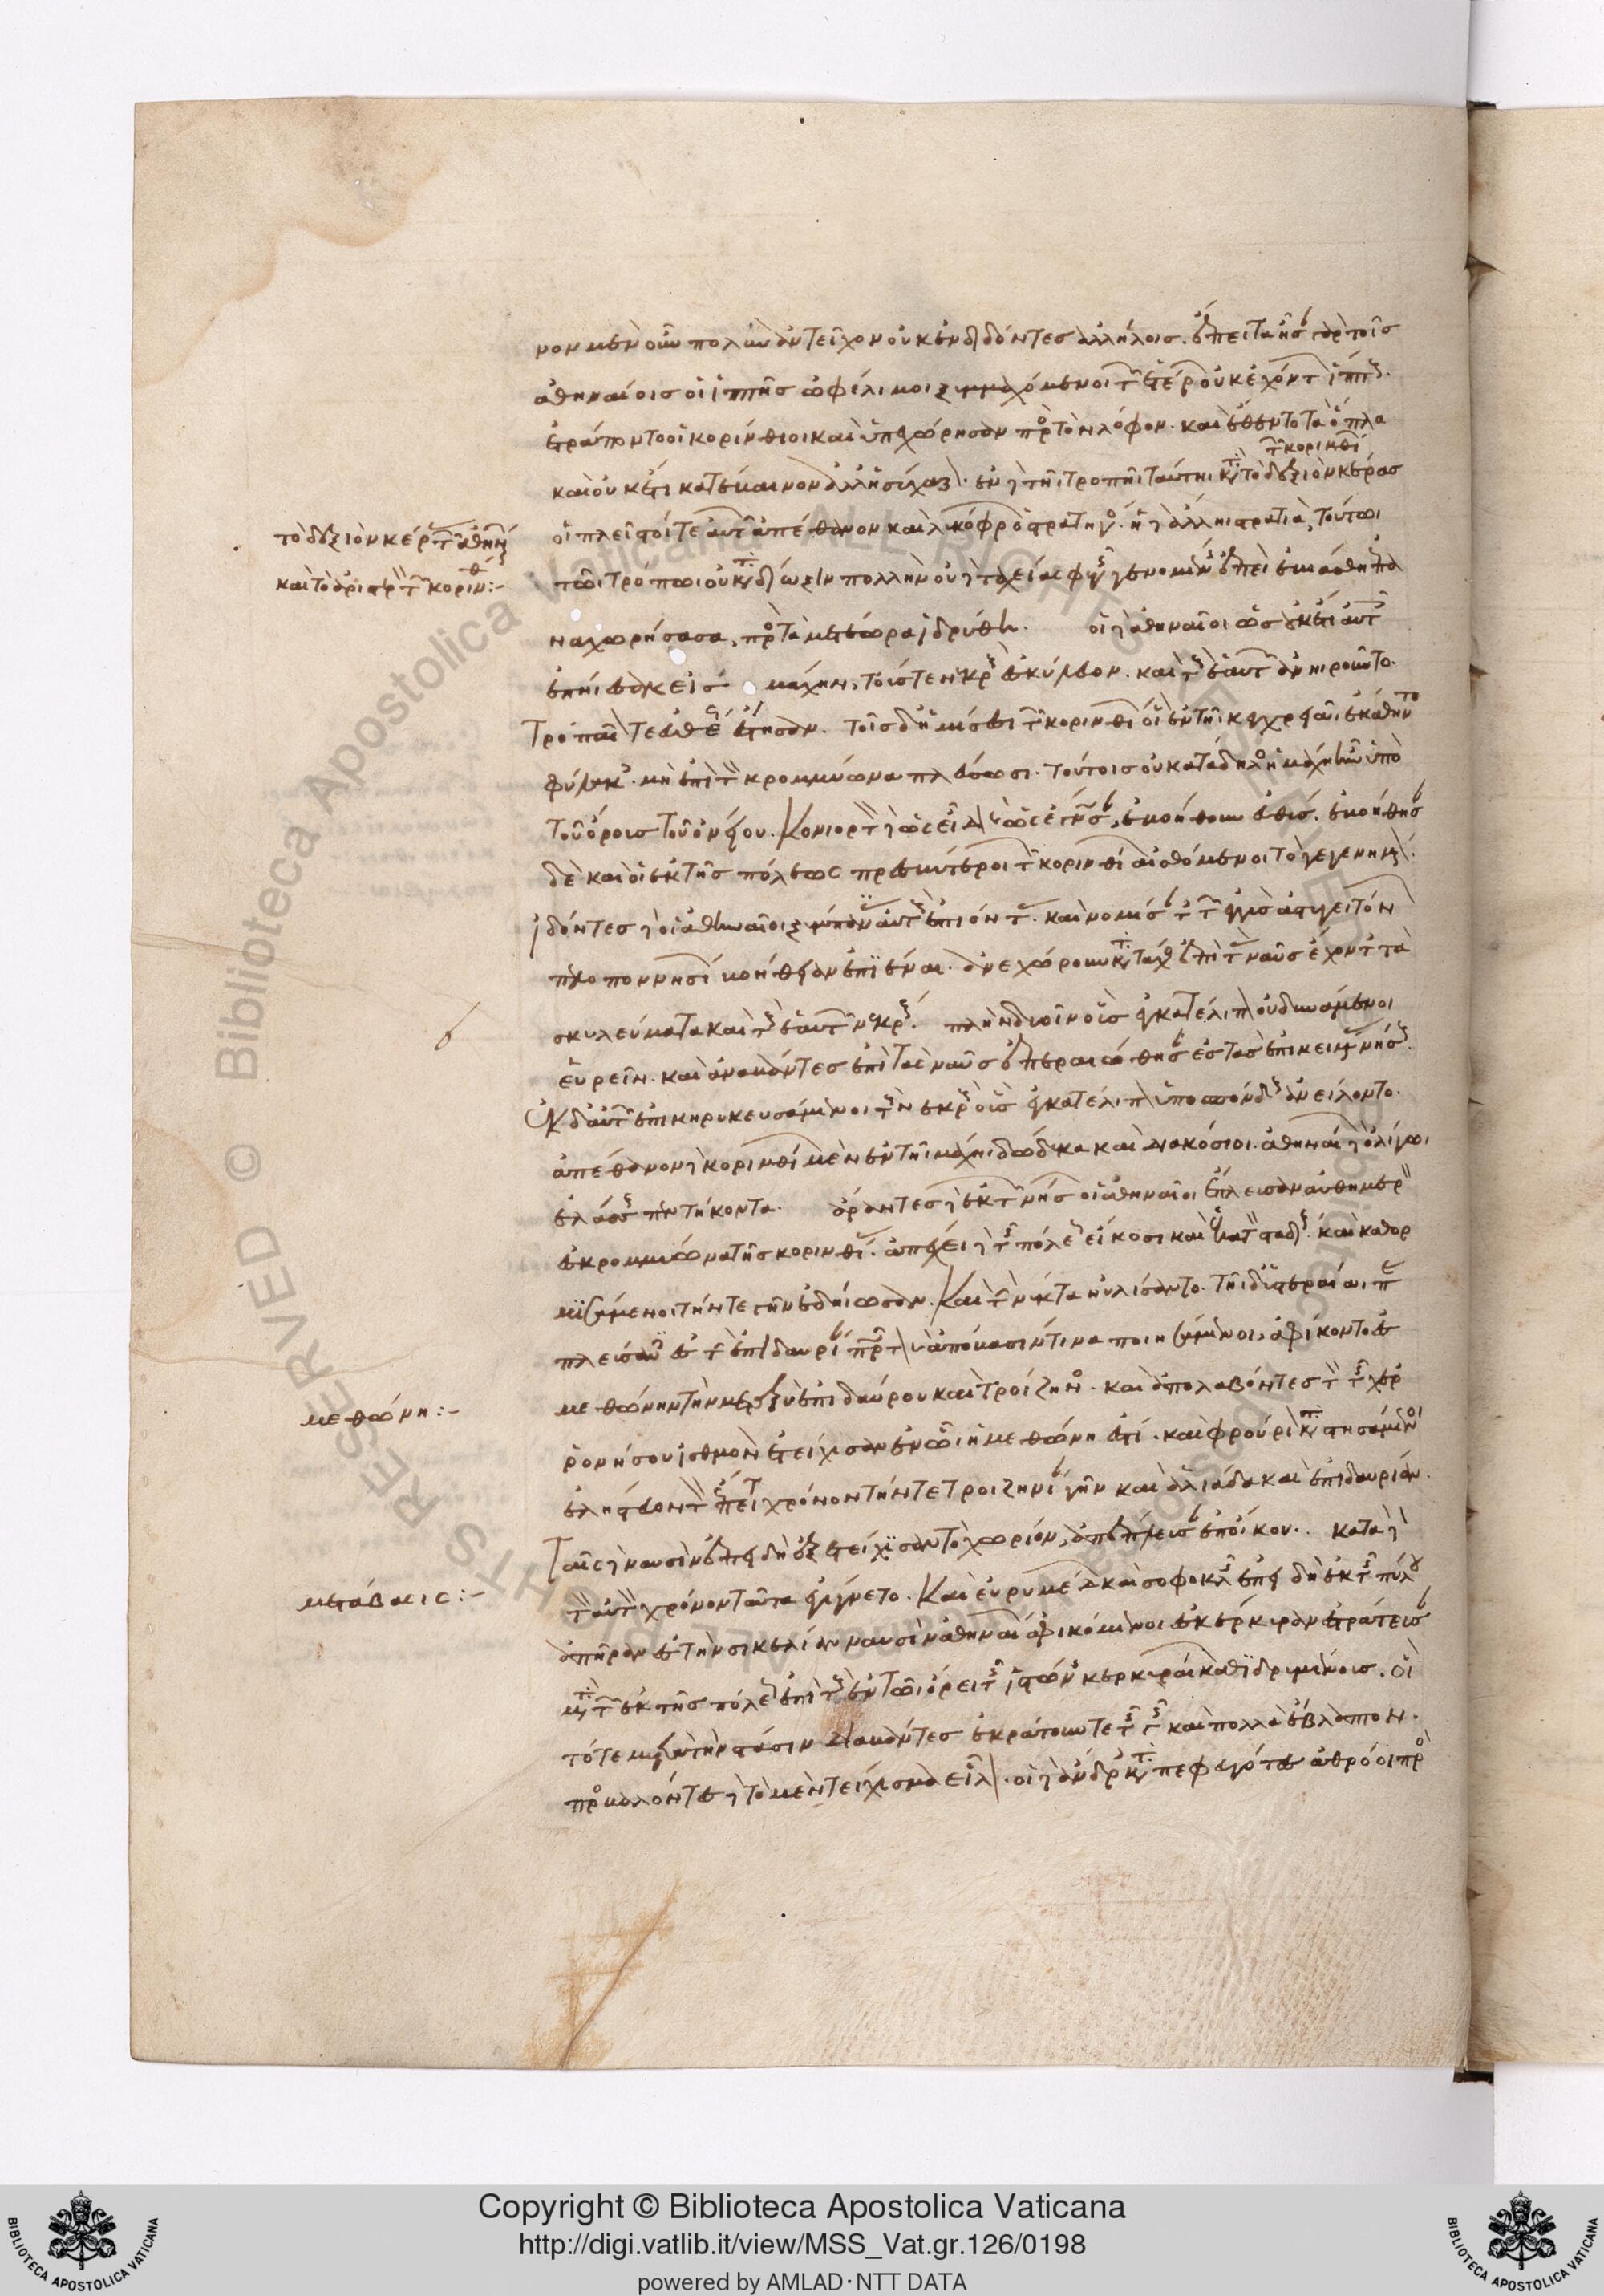 νον μὲν οὖν πολὺν ἀντεῖχον οὐκ ἐνδιδόντες ἀλλήλοις. ἔπειτα ἦσαν γὰρ τοῖς
ἀθηναίοις οἱ ἱππῆς ὠφέλιμοι ξυμμαχόμενοι τῶν ἑτέρων οὐκ ἐχόντων ἵππους.
ἐτράποντο οἱ κορίνθιοι καὶ ὑπεχώρησαν πρὸς τὸν λόφον. καὶ ἔθεντο τὰ ὅπλα
τῶν κορινθίων
καὶ οὐκέτι κατέβαινον ἀλλ' ἡσύχαζον. ἐν δὲ τῆι τροπῆι ταύτηι κατὰ τὸ δεξιὸν κέρας
τὸ δεξιὸν κέρας τῶν ἀθηναίων
οἱ πλεῖστοί τε αὐτῶν ἀπέθανον καὶ λυκόφρων ὁ στρατηγός. ἡ δὲ ἄλληι στρατιὰ, τούτωι
καὶ τὸ ἀριστερὸν τῶν κορινθίων:-
τῶι τρόπωι οὐ κατὰ δίωξιν πολλὴν οὐδὲ ταχείας φυγῆς γενομένης ἐπεὶ ἐβιάσθη ἐπα
ναχωρήσασα, πρὸς τὰ μετέωρα ἱδρύθη. οἱ δὲ ἀθηναῖοι ὡς οὐκέτι αὐτοῖς
ἐπήιεσαν ἐς μάχην, τούς τε νεκροὺς ἐσκύλευον. καὶ τοὺς ἑαυτῶν ἀνηιροῦντο.
τροπαῖόν τε εὐθέως ἔστησαν. τοῖς δ' ἡμίσεσι τῶν κορινθίων οἳ ἐν τῆι κεγχρειᾶι ἐκάθηντο
φύλακες. μὴ ἐπὶ τὸν κρομμυῶνα πλεύσωσι. τούτοις οὐ κατάδηλος ἡ μάχη ἦν ὑπὸ
τοῦ ὄρους τοῦ ὀνείου. Κονιορτὸν δὲ ὡς εἶδον καὶ ὡς ἔγνωσαν, ἐβοήθουν εὐθύς. ἐβοήθησαν
δὲ καὶ οἱ ἐκ τῆς πόλεως πρεσβύτεροι τῶν κορινθίων αἰσθόμενοι τὸ γεγενημένον.
ἰδόντες δὲ οἱ ἀθηναῖοι ξύμπαντας αὐτοὺς ἐπιόντας. καὶ νομίσαντες τῶν ἐγγὺς ἀστυγειτόνων
πελοποννησίων βοήθειαν ἐπιϊέναι. ἀνεχώρουν κατὰ τάχος ἐπὶ τὰς ναῦς ἔχοντες τὰ
σκυλεύματα καὶ τοὺς ἑαυτῶν νεκρούς. πλὴν δυοῖν οὓς ἐγκατέλιπον οὐ δυνάμενοι
εὑρεῖν. καὶ ἀναβάντες ἐπὶ τὰς ναῦς ἐπεραιώθησαν ἐς τὰς ἐπικειμένας νήσους.
ἐκ δ' αὐτῶν ἐπικηρυκευσάμενοι τοὺς νεκροὺς οὓς ἐγκατέλιπον ὑποσπόνδους ἀνείλοντο.
ἀπέθανον δὲ κορινθίων μὲν ἐν τῆι μάχηι δώδεκα καὶ διακόσιοι. ἀθηναίων δὲ ὀλίγωι
ἐλάσσους πεντήκοντα. ἄραντες δὲ ἐκ τῶν νήσων οἱ ἀθηναῖοι ἔπλευσαν αὐθημερὸν
ἐς κρομμυῶνα τῆς κορινθίας. ἀπέχει δὲ τῆς πόλεως εἴκοσι καὶ ἑκατὸν σταδίους. καὶ καθορ
μϊσάμενοι τήν τε γῆν ἐδήιωσαν. Καὶ τὴν νύκτα ηὐλίσαντο. τῆι δ' ὑστεραίαι παρα
πλεύσαντες ἐς τὴν ἐπιδαυρίαν πρῶτον καὶ ἀπόβασίν τινα ποιησάμενοι, ἀφίκοντο ἐς
μεθώνη:-
μεθώνην τὴν μεταξὺ ἐπιδαύρου καὶ τροιζῆνος. καὶ ἀπολαβόντες τὸν τῆς χερ
ρονήσου ἰσθμὸν ἐτείχισαν ἐν ὧι ἡ μεθώνη ἐστί. καὶ φρούριον καταστησάμενοι
ἐλήστευον τὸν ἔπειτα χρόνον τήν τε τροιζηνίαν γῆν καὶ ἁλιάδα καὶ ἐπιδαυρίαν.
Ταῖς δὲ ναυσὶν ἐπειδὴ ἐξετείχϊσαν τὸ χωρίον, ἀπέπλευσαν ἐπ' οἴκου. κατὰ δὲ
μετάβασις:-
τὸν αὐτὸν χρόνον ταῦτα ἐγίγνετο. Καὶ εὐρυμέδων καὶ σοφοκλῆς ἐπειδὴ ἐκ τῆς πύλου
ἀπῆραν ἐς τὴν σικελίαν ναυσὶν ἀθηναίων ἀφικόμενοι ἐς κέρκυραν ἐστράτευσαν
μετὰ τῶν ἐκ τῆς πόλεως ἐπὶ τοὺς ἐν τῶι ὄρει τῆς ἰστώνης κερκυραίων καθϊδρυμένους. οἳ
τότε μετὰ τὴν στάσιν διαβάντες ἐκράτουν τε τῆς γῆς καὶ πολλὰ ἔβλαπτον.
προσβαλόντες δὲ τὸ μὲν τείχισμα εἷλον. οἱ δὲ ἄνδρες καταπεφευγότες ἁθρόοι πρὸς
Copyright © Biblioteca Apostolica Vaticana
http://digi.vatlib.it/view/MSS_Vat.gr.126/0198
powered by AMLAD·NTT DATA